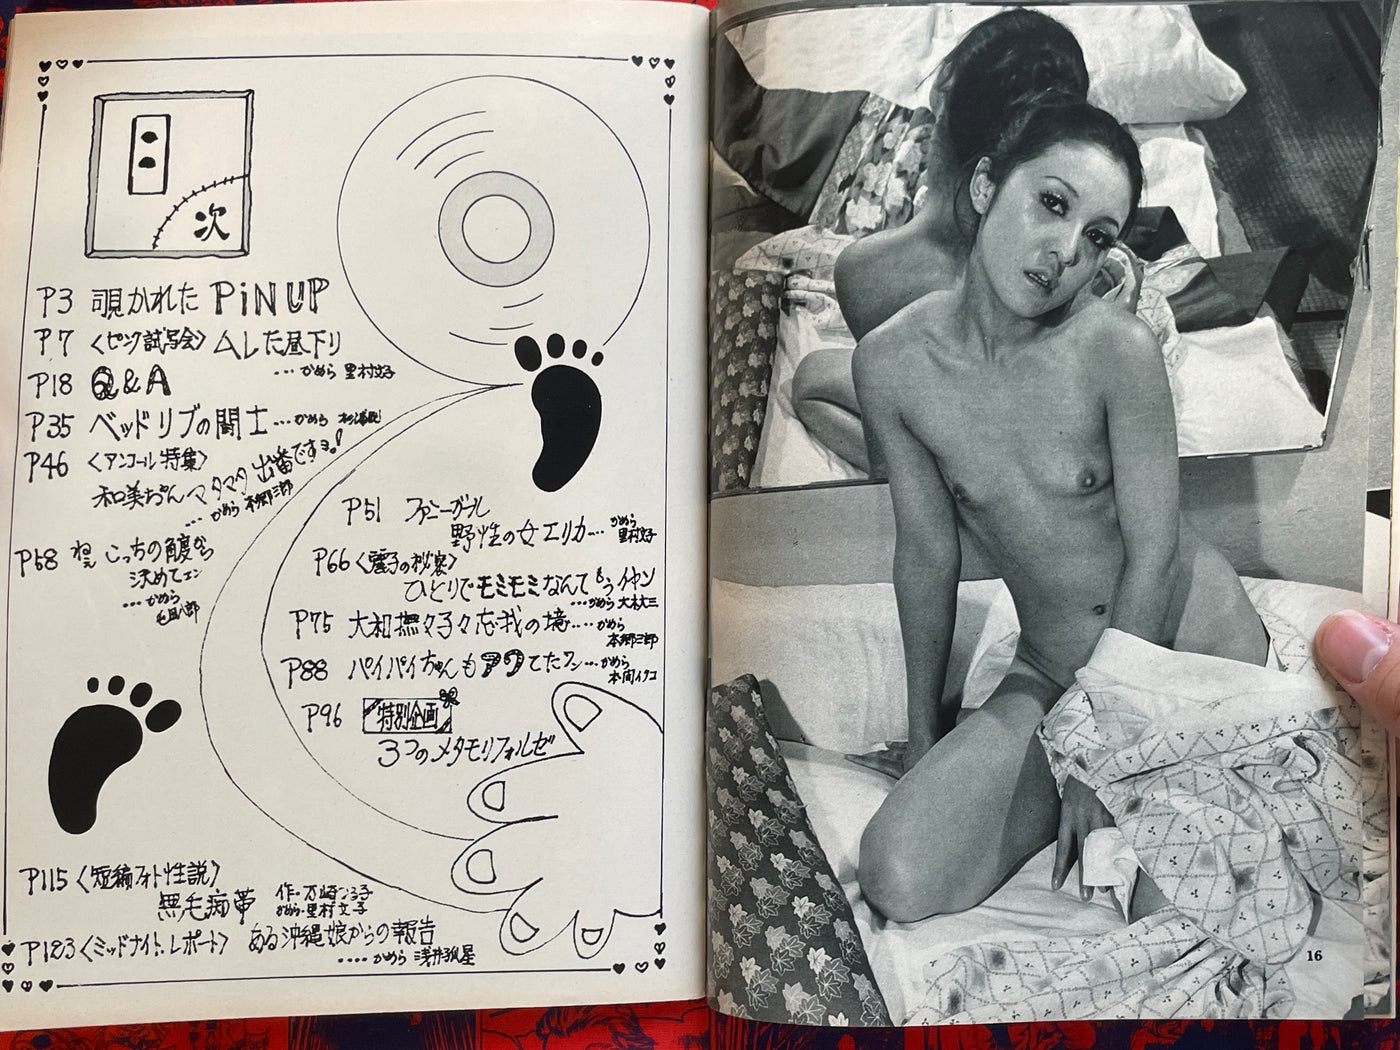 目次
P3 覗かれた PiNUP
P7 〈ピンク試写会〉ムレた昼下り
…かめら 里村文子
P18 Q&A
P35 ベッドリブの闘士…かめら
P46 〈アンコール特集〉
和美ちゃんマタマタ出番ですョ!
…かめら 本郷三郎
P58 ねぇ こっちの角度から
決めてェン
…かめら
P51 ファニーガール
野性の女エリカ…かめら 里村文子
P66〈麗子の秘密〉
ひとりでモミモミなんてもうイヤン
…かめら 大木大三
P75 大和撫々子々忘我の境…かめら
本郷三郎
P88 パイパイちゃんもアワてたワン…かめら
P96 特別企画
3つのメタモリフォルゼ
P115〈短編フォト性説〉
無毛痴帯
かめら・里村文子
P123〈ミッドナイト・レポート〉ある沖縄娘からの報告
…かめら 浅井狐星
16